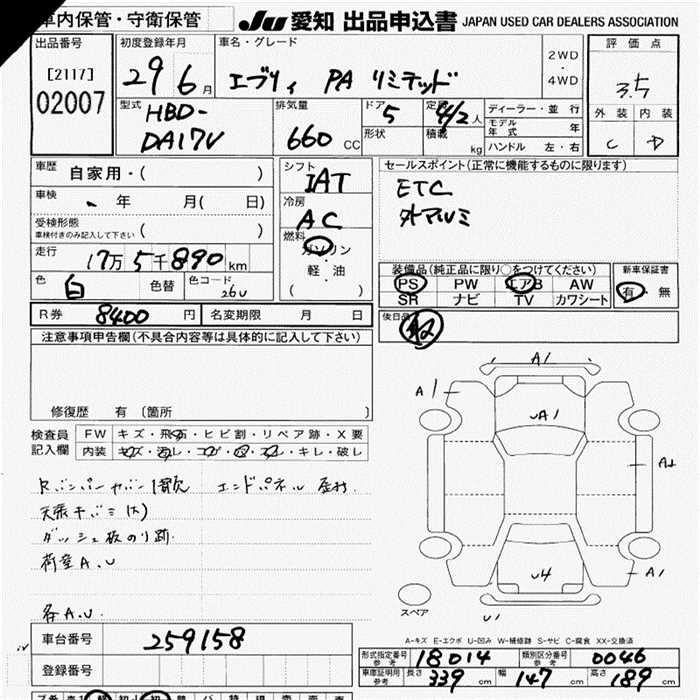 車内保管・守衛保管 JU 愛知 出品申込書 JAPAN USED CAR DEALERS ASSOCIATION
出品番号 初度登録年月 車名・グレード 2WD・4WD 評価点
[2117] 29 6月 エブリィ PA リミテッド 3.5
02007 型式 排気量 ドア 定員 ディーラー・並行 外装 内装
HBD-DA17V 660 CC 5 4/2人 モデル年式 年 C D
形状 積載 kg ハンドル 左・右
車歴 自家用・( ) シフト IAT セールスポイント(正常に機能するものに限ります)
車検 年 月( 日) 冷房 AC ETC
受検形態 車検付きのみ記入して下さい ( ) 燃料 ガソリン・軽・油 ( ) 外アルミ
走行 17万5千890km 装備品(純正品に限り○をつけてください) 新車保証書
色 白 色替 色コード 26U PS PW エアB AW 有・無
SR ナビ TV カワシート
R券 8400円 名変期限 月 日 後日品
注意事項申告欄(不具合内容等は具体的に記入して下さい)
修復歴 有 〔箇所 〕
検査員記入欄 FW キズ・飛石・ヒビ割・リペア跡・X要
内装 キズ・汚レ・コゲ・穴・スレ・キレ・破レ
エンドパネル
ダッシュ板のり跡
荷室A.U
各A.U
A1
A1
A1
A1
U4
U1
スペア
A-キズ E-エクボ U-凹み W-補修跡 S-サビ C-腐食 XX-交換済
車台番号 259158
登録番号
形式指定番号 参考 18014 類別区分番号 参考 0046
車庫証明用 参考 長さ 339cm 幅 147cm 高さ 189cm